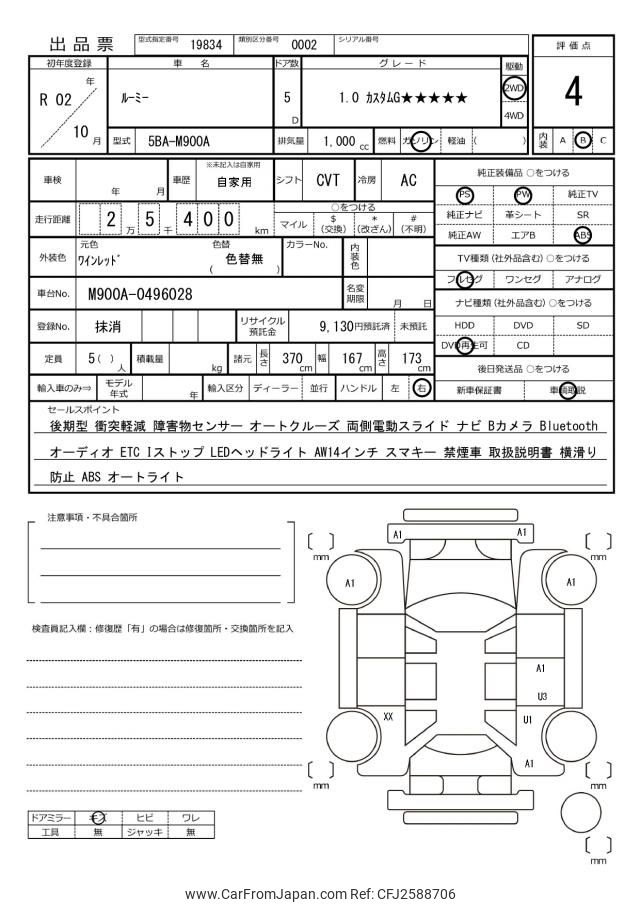 出品票 型式指定番号 19834 類別区分番号 0002 シリアル番号 評価点
初年度登録 車 名 ドア数 グレード 駆動
R 02 年 ルーミー 5 D 1.0 カスタムG★★★★★ 2WD 4
10 月 4WD
型式 5BA-M900A 排気量 1,000 cc 燃料 ガソリン 軽油 ( ) 内装 A B C
車検 年 月 車歴 ※未記入は自家用 自家用 シフト CVT 冷房 AC 純正装備品 ○をつける
PS PW 純正TV
走行距離 2 5 4 0 0 万 千 km ○をつける 純正ナビ 革シート SR
マイル $(交換) *(改ざん) #(不明) 純正AW エアB ABS
外装色 元色 ワインレッド 色替 ( 色替無 ) カラーNo. 内装色 TV種類(社外品含む) ○をつける
フルセグ ワンセグ アナログ
車台No. M900A-0496028 名変期限 月 日 ナビ種類(社外品含む) ○をつける
登録No. 抹消 リサイクル預託金 9,130円預託済 未預託 HDD DVD SD
DVD再生可 CD
定員 5( ) 人 積載量 kg 諸元 長さ 370 cm 幅 167 cm 高さ 173 cm 後日発送品 ○をつける
輸入車のみ⇒ モデル年式 年 輸入区分 ディーラー 並行 ハンドル 左 右 新車保証書 車輌取説
セールスポイント
後期型 衝突軽減 障害物センサー オートクルーズ 両側電動スライド ナビ Bカメラ Bluetooth
オーディオ ETC Iストップ LEDヘッドライト AW14インチ スマキー 禁煙車 取扱説明書 横滑り
防止 ABS オートライト
注意事項・不具合箇所
検査員記入欄:修復歴「有」の場合は修復箇所・交換箇所を記入
A1 A1
mm mm
A1 A1
A1
U3
XX U1
A1
mm mm
mm
ドアミラー キズ ヒビ ワレ
工具 無 ジャッキ 無
www.CarFromJapan.com Ref: CFJ2588706